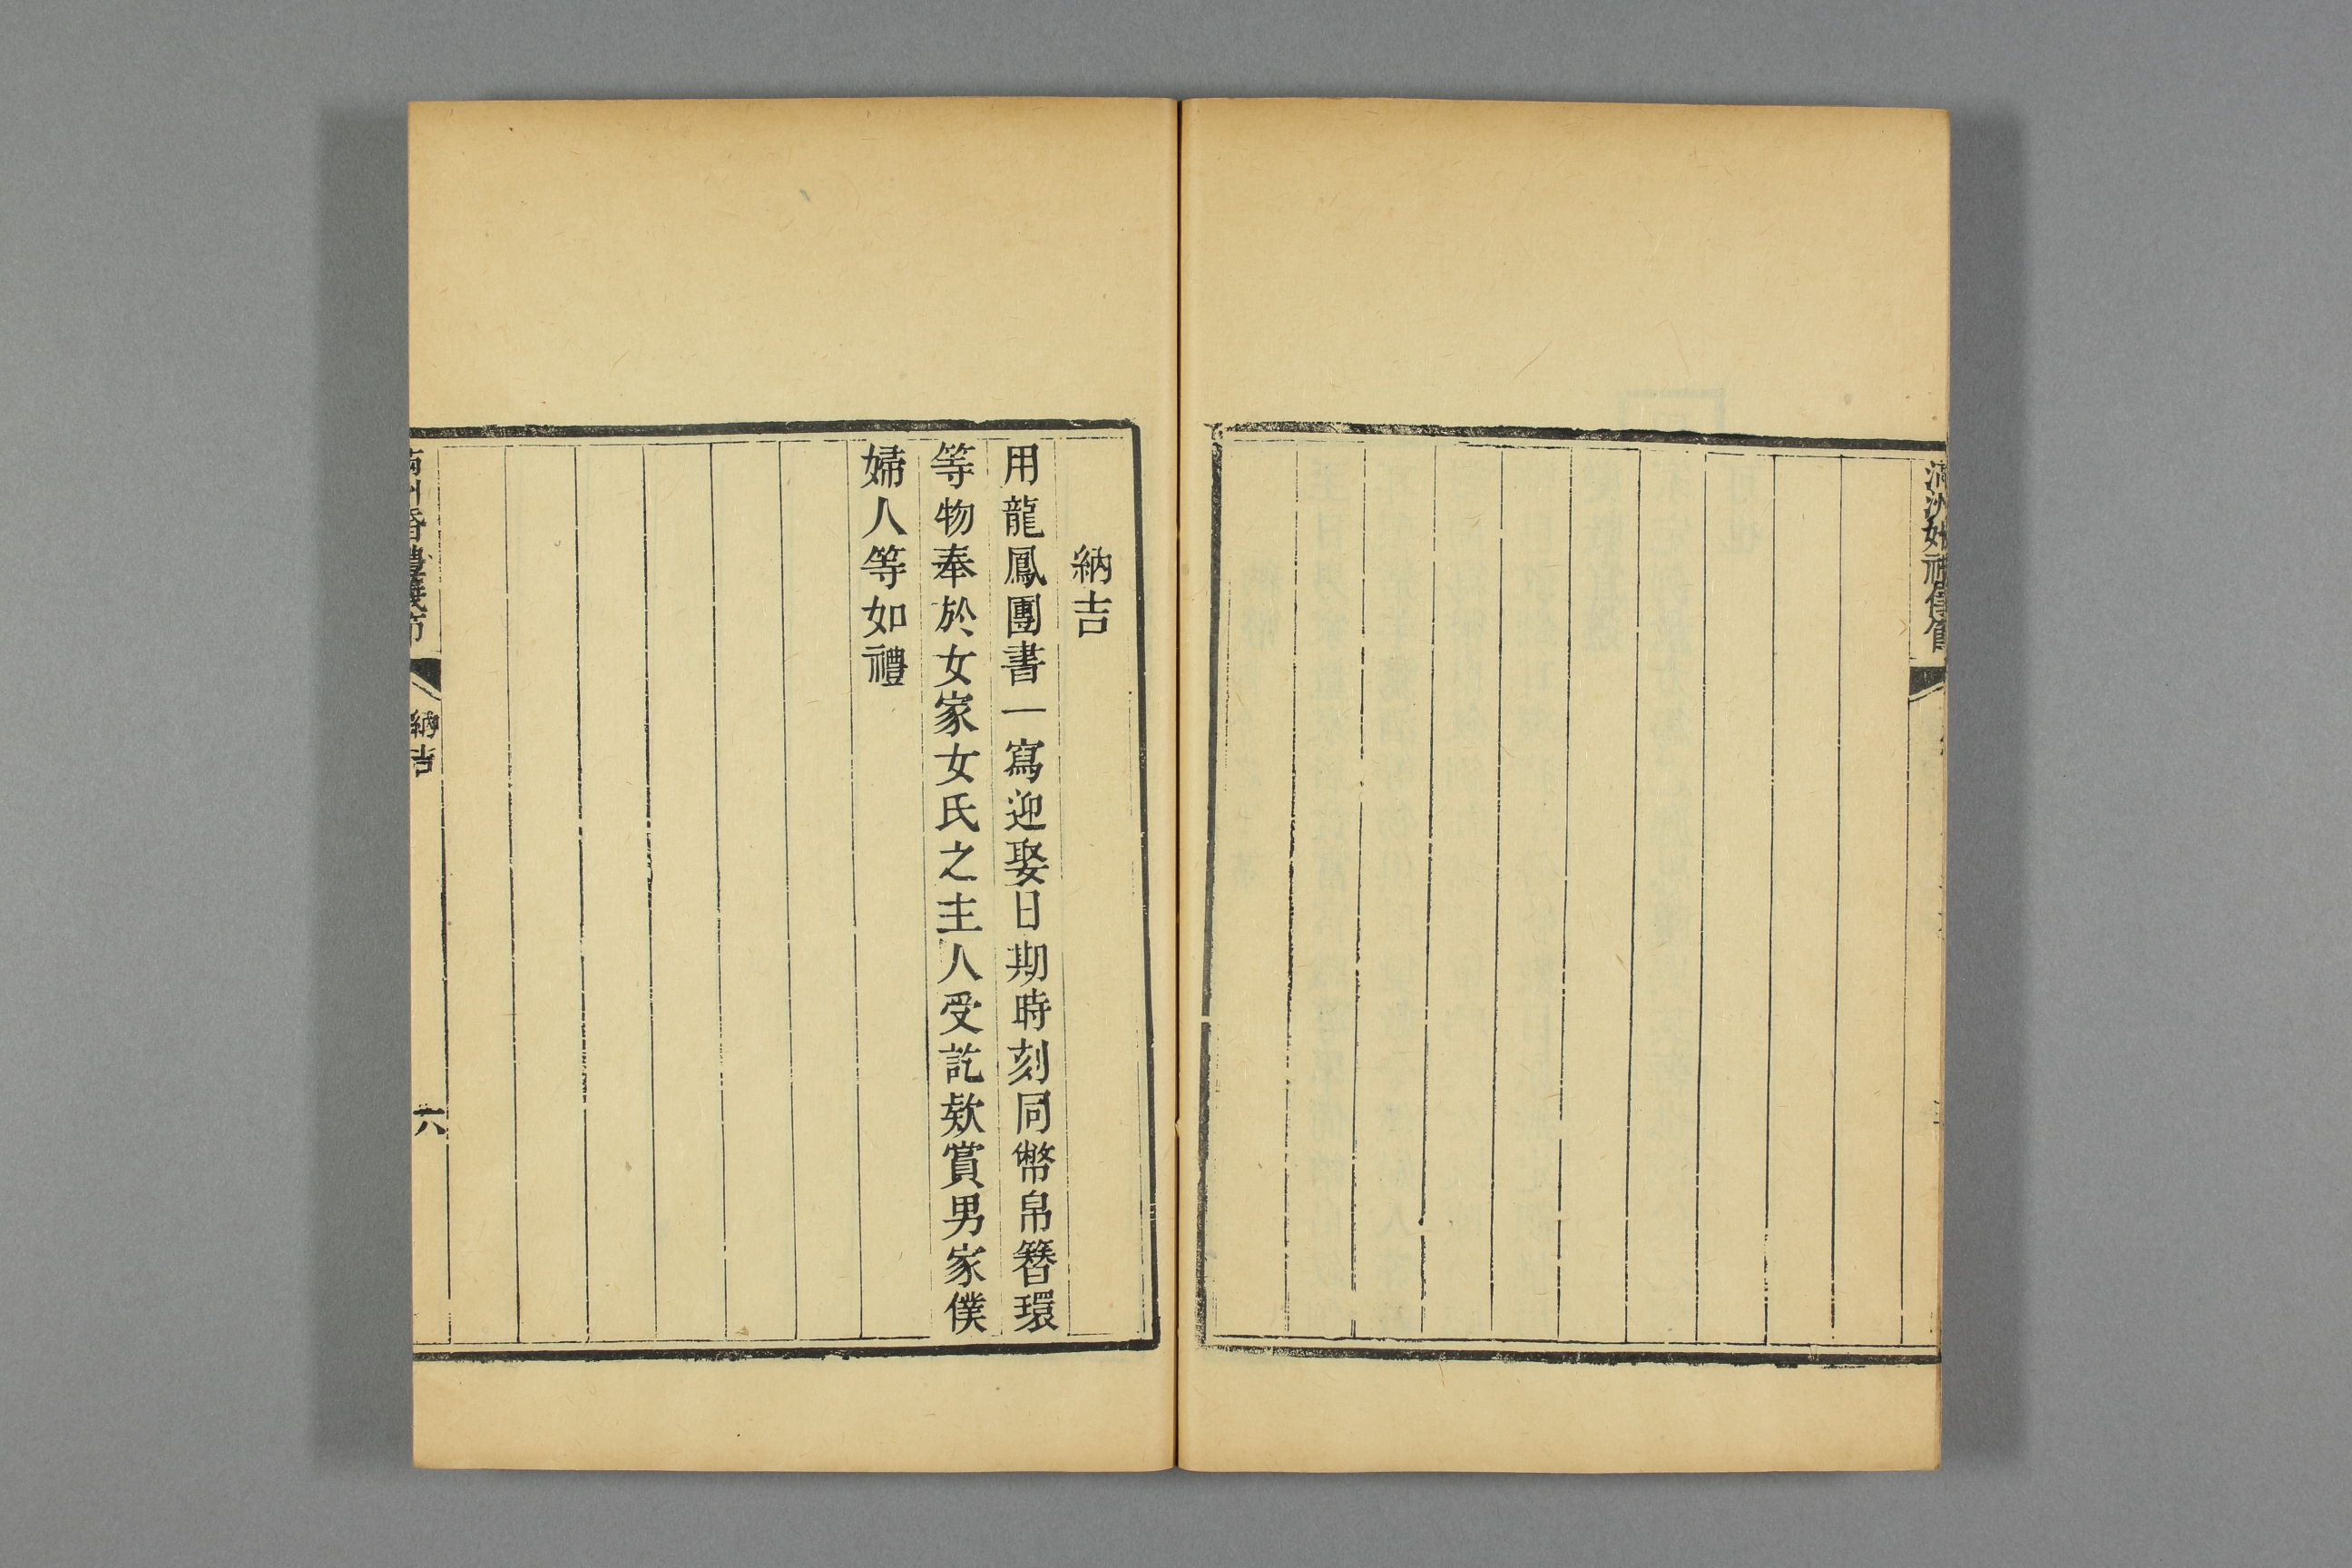 納吉
用龍鳳團書一寫迎娶日期時刻同幣帛簪環
等物奉於女家女氏之主人受訖欵賞男家僕
婦人等如禮
納吉
六